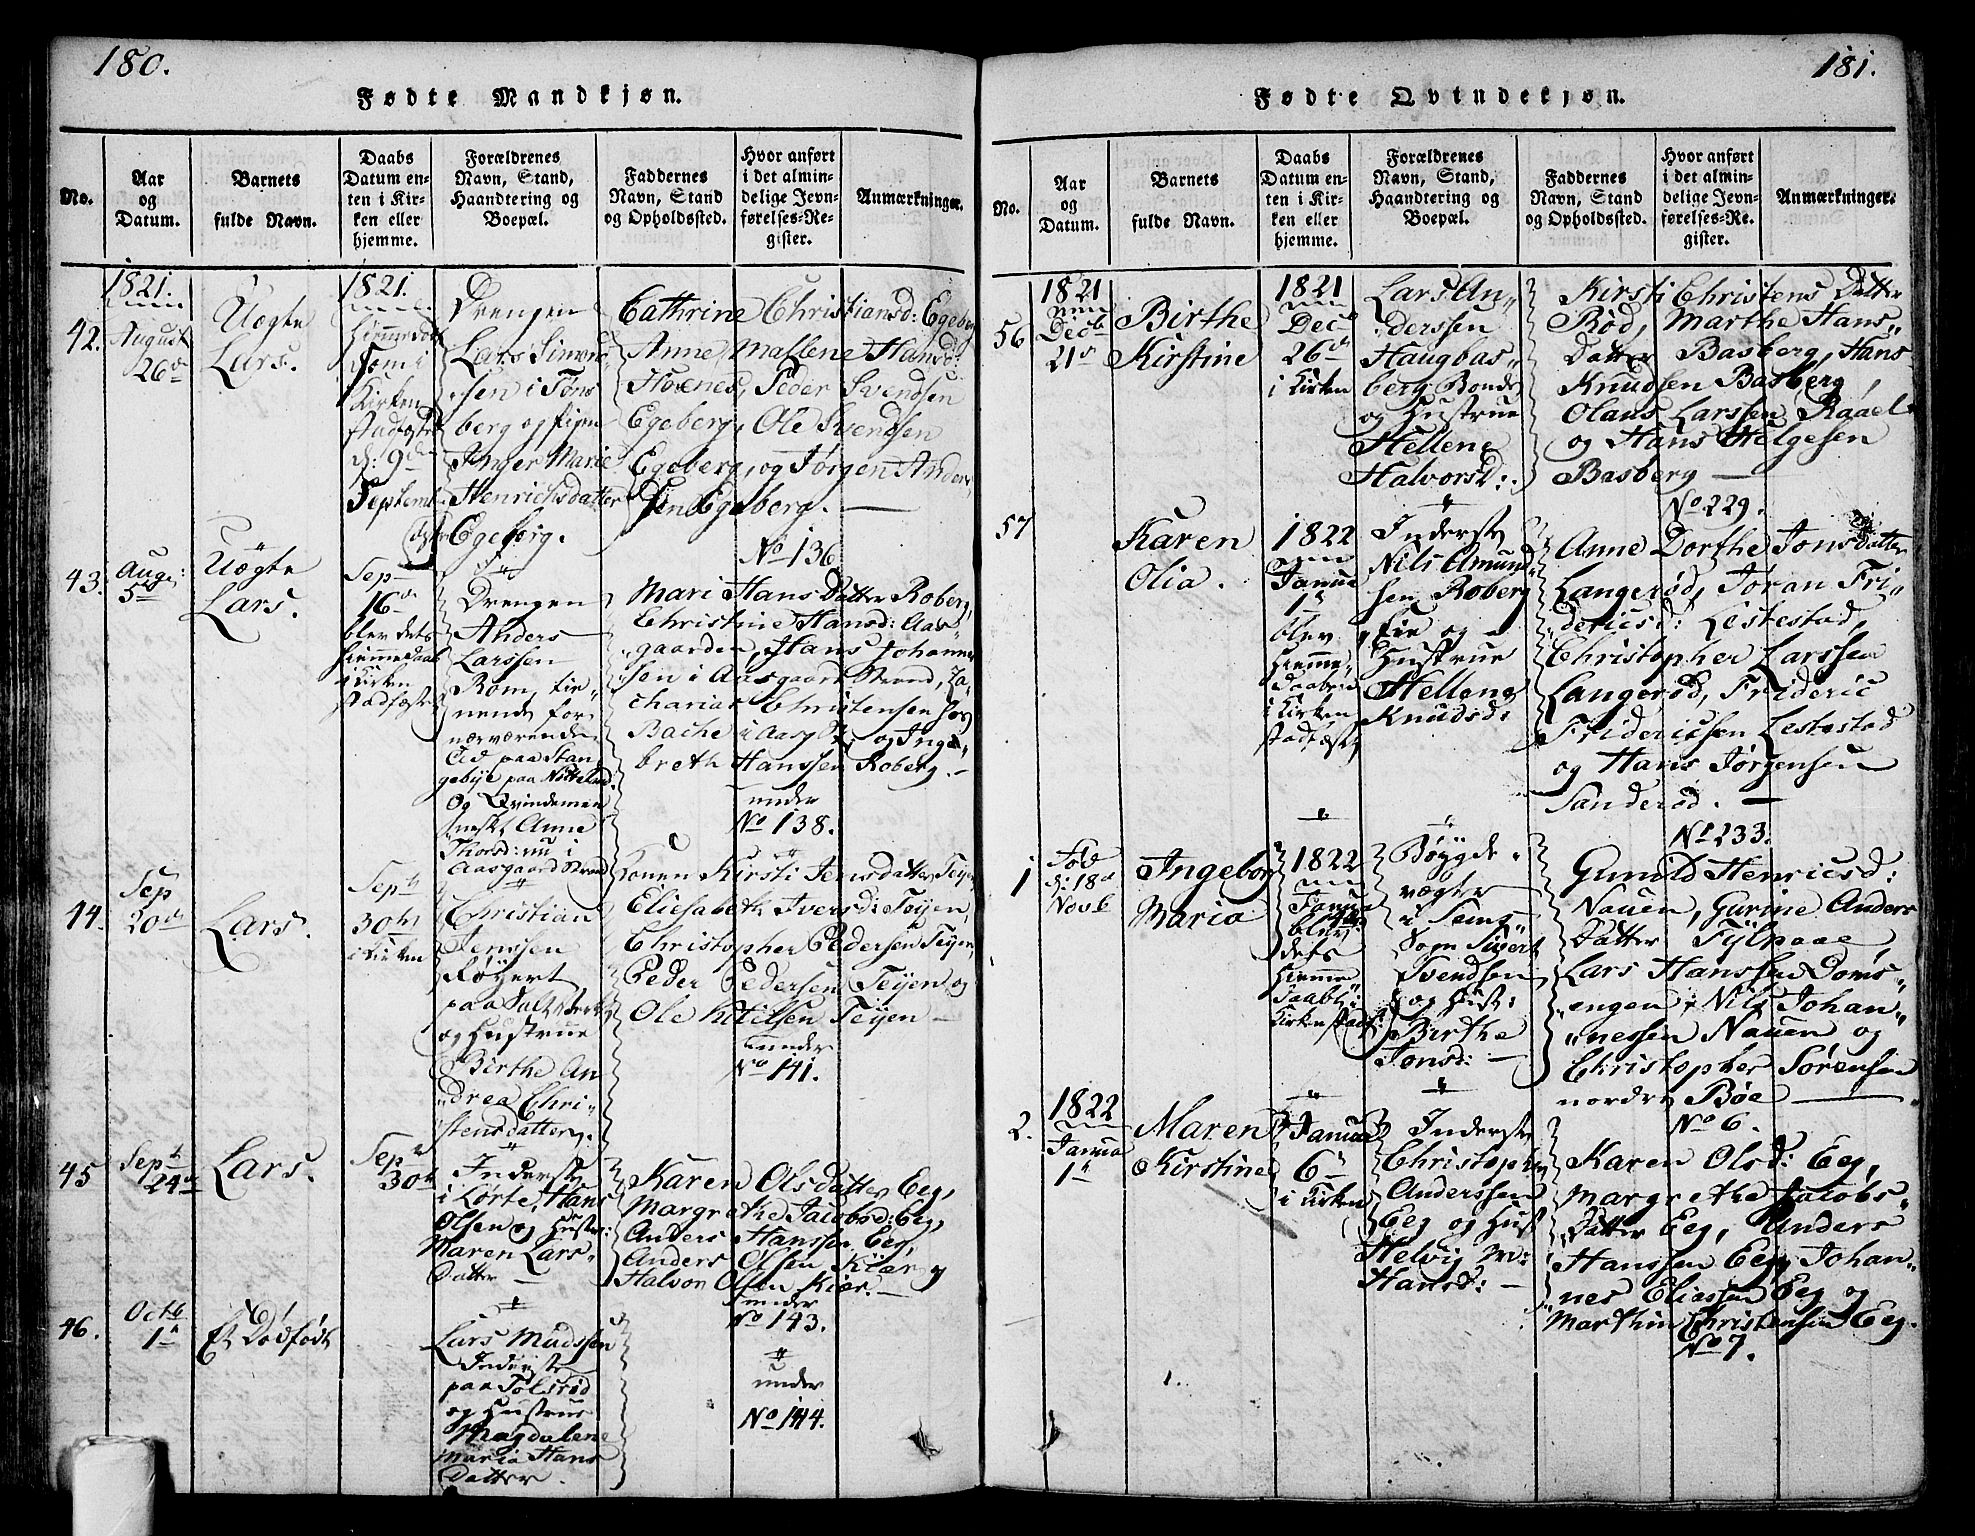 180.
Fødte Mandkjøn.
No.
Aar
og
Datum.
Barnets
fulde Navn.
Daabs
Datum en-
ten i Kir-
ken eller
hjemme.
Forældrenes
Navn, Stand,
Haandtering og
Boepæl.
Faddernes
Navn, Stand
og Opholdssted.
Hvor anført
i det almin-
delige Jevn-
førelses-Re-
gister.
Anmærkninger.
42.
1821.
August
26de
Uægte
Lars.
1821.
i
Kirken
stadfæstet
d: 9de
Septemb
Drengen
Lars Simens
sen i Tøns
berg og pigen
Inger Marie
Henrichsdatter
Egeberg.
Cathrine Christiansd: Egeberg
Anne Mallene Hansd:
Hoxnes, Peder Svendsen
Egeberg, Ole Svendsen
Egeberg, og Jørgen Anders
sen Egeberg. —
No 136
43.
Aug:
5te
Uægte
Lars.
Sep
16de
blev dets
hiemmedaab
i Kirken
stadfæstet
Drengen
Anders
Larssen
Rom, tie-
nende for
nærværende
Tid paa Stan
gebye paa Nøtteland
Og Qvindemen
nesket Anne
Thorsd: nu i
Aasgaardstrand
Mari Hans Datter Roberg,
Christine Hansd: Aas-
gaarden, Hans Johannes
sen i Aasgaardstrand, Za-
charias Christensen
Bache i Aasg og Inge-
breth Hanssen Roberg. —
under
No 138.
44.
Sep
20de
Lars.
Septb
30te
i Kirken
Christian
Jenssen
Røgert
paa Saltværket
og Hustrue
Birthe An
drea Chri-
stensdatter.
Konen Kirsti Jensdatter Teÿen
Eliesabeth Iversd: Teÿen,
Christopher Pedersen Teÿen,
Peder Pedersen Teÿen og
Ole Ketilsen Teÿen —
under
No 141.
45
Sept
24de
Lars.
Sep
30te
Inderste
i Lørte, Hans
Olsen og Hustr:
Maren Lars-
datter —
Karen Olsdatter Eeg,
Margrethe Jacobsd: Eeg,
Anders Hanssen Eeg,
Anders Olsen Kiær og
Halvor Olsen Kiær. —
under
No 143.
46.
Octb
1te
Et Dødfødt
Lars Madssen
Inderste
paa Tolsrød
og Hustrue
Magdalene
Maria Hans
Datter.
under
No 144.
181.
Fødte Qvindekjøn.
No.
Aar
og
Datum.
Barnets
fulde Navn.
Daabs
Datum en-
ten i Kir-
ken eller
hjemme.
Forældrenes
Navn, Stand,
Haandtering og
Boepæl.
Faddernes
Navn, Stand
og Opholdssted.
Hvor anført
i det almin-
delige Jevn-
førelses-Re-
gister.
Anmærkninger.
56
1821
Decb
21de
Birthe
Kirstine
1821
Dec
26de
i Kirken
Lars An-
derssen
Haugbas-
berg Bonde
og Hustrue
Hellene
Halvorsd:
Kirsti Christens Datter
Rød, Marthe Hans-
Datter Basberg, Hans
Knudsen Basberg,
Olaus Larssen Raael
og Hans Helgesen
Basberg —
No 229.
57
Karen
Olia.
1822
Janua
1te
blev
hiemme-
daaben
i Kirken
stadfæstet
Inderste
Nils Amund-
sen Roberg
Eie og
Hustrue
Hellene
Knudsd:
Anne Dorthe Jonsdatter
Langerød, Jøran Fri-
dericsd: Lestestad,
Christopher Larssen
Langerød, Frideric
Fridericsen Lestestad
og Hans Jørgensen
Sanderød. —
No 233.
1
Fød
d: 18de
Novb
Ingeborg
Maria
1822
Janua
blev
dets
hiemme
daab
i
Kirken stadf:
Bøygde-
vægter
i Sems
Sogn Sivert
Svendsen
og Hust:
Birthe
Jonsd: —
Gunild Henricsd:
Nauen, Gurine Anders
Datter Fÿlpaae
Lars Hanssen Doms-
engen, Nils Johan-
nessen Nauen og
Christopher Sørensen
nordre Bøe —
No 6.
2.
1822
Janua
1te
Maren
Kirstine
Janua
6te
i Kirken
Inderste
Christopher
Anderssen
Eeg og Hust
Helvig M:
Hansd: —
Karen Olsd: Eeg,
Margrethe Jacobs-
Datter Eeg, Anders
Hanssen Eeg, Johan-
nes Eliassen Eeg og
Marthin Christensen Eeg.
No 7.